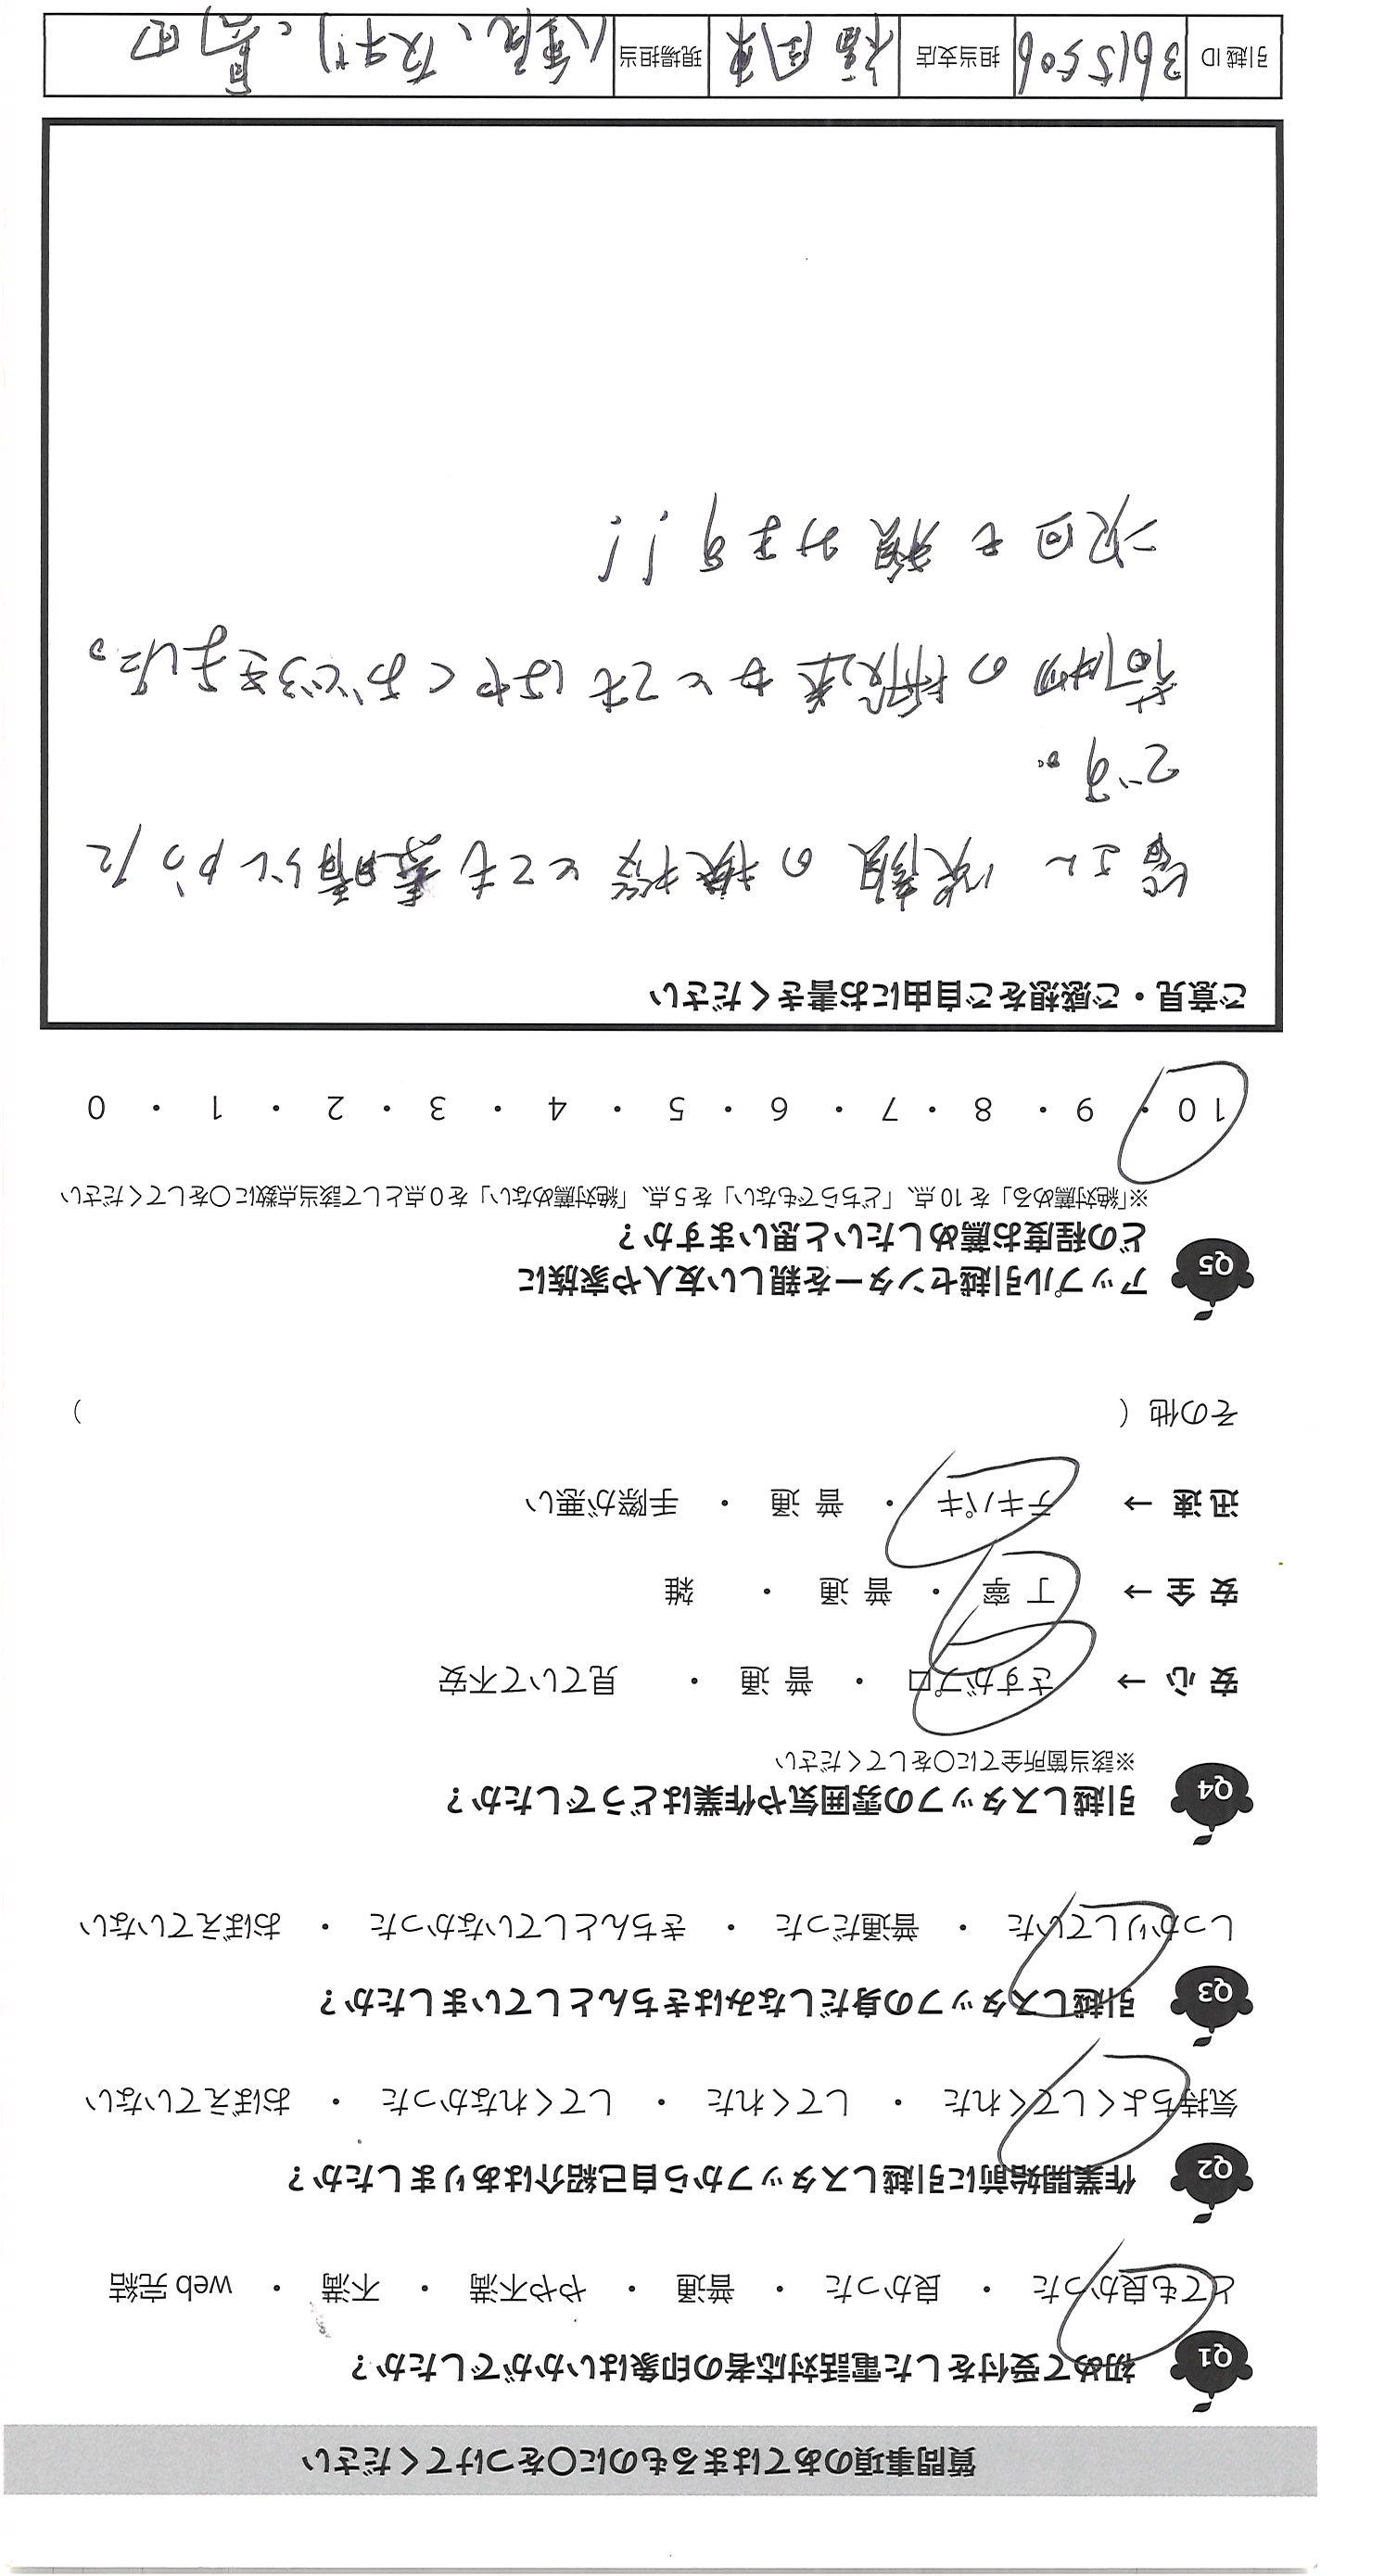 質問事項のあてはまるものに○をつけてください
Q1 初めて受付をした電話対応者の印象はいかがでしたか？
とても良かった ・ 良かった ・ 普通 ・ やや不満 ・ 不満 ・ web 完結
Q2 作業開始前に引越しスタッフから自己紹介はありましたか？
気持ちよくしてくれた ・ してくれた ・ してくれなかった ・ おぼえていない
Q3 引越しスタッフの身だしなみはきちんとしていましたか？
しっかりしていた ・ 普通だった ・ きちんとしていなかった ・ おぼえていない
Q4 引越しスタッフの雰囲気や作業はどうでしたか？
※該当箇所全てに○をしてください
安 心 → さすがプロ ・ 普 通 ・ 見ていて不安
安 全 → 丁 寧 ・ 普 通 ・ 雑
迅 速 → テキパキ ・ 普 通 ・ 手際が悪い
その他（ ）
Q5 アップル引越センターを親しい友人や家族に
どの程度お薦めしたいと思いますか？
※「絶対薦める」を 10 点、「どちらでもない」を 5 点、「絶対薦めない」を 0 点として該当点数に○をしてください
10 ・ 9 ・ 8 ・ 7 ・ 6 ・ 5 ・ 4 ・ 3 ・ 2 ・ 1 ・ 0
ご意見・ご感想をご自由にお書きください
皆さん 笑顔の挨拶とても素晴らしかった
です。
荷物の搬送もとてもはやくおどろきました。
次回も頼みます!!
引越 ID 3615506 担当支店 福岡東 現場担当